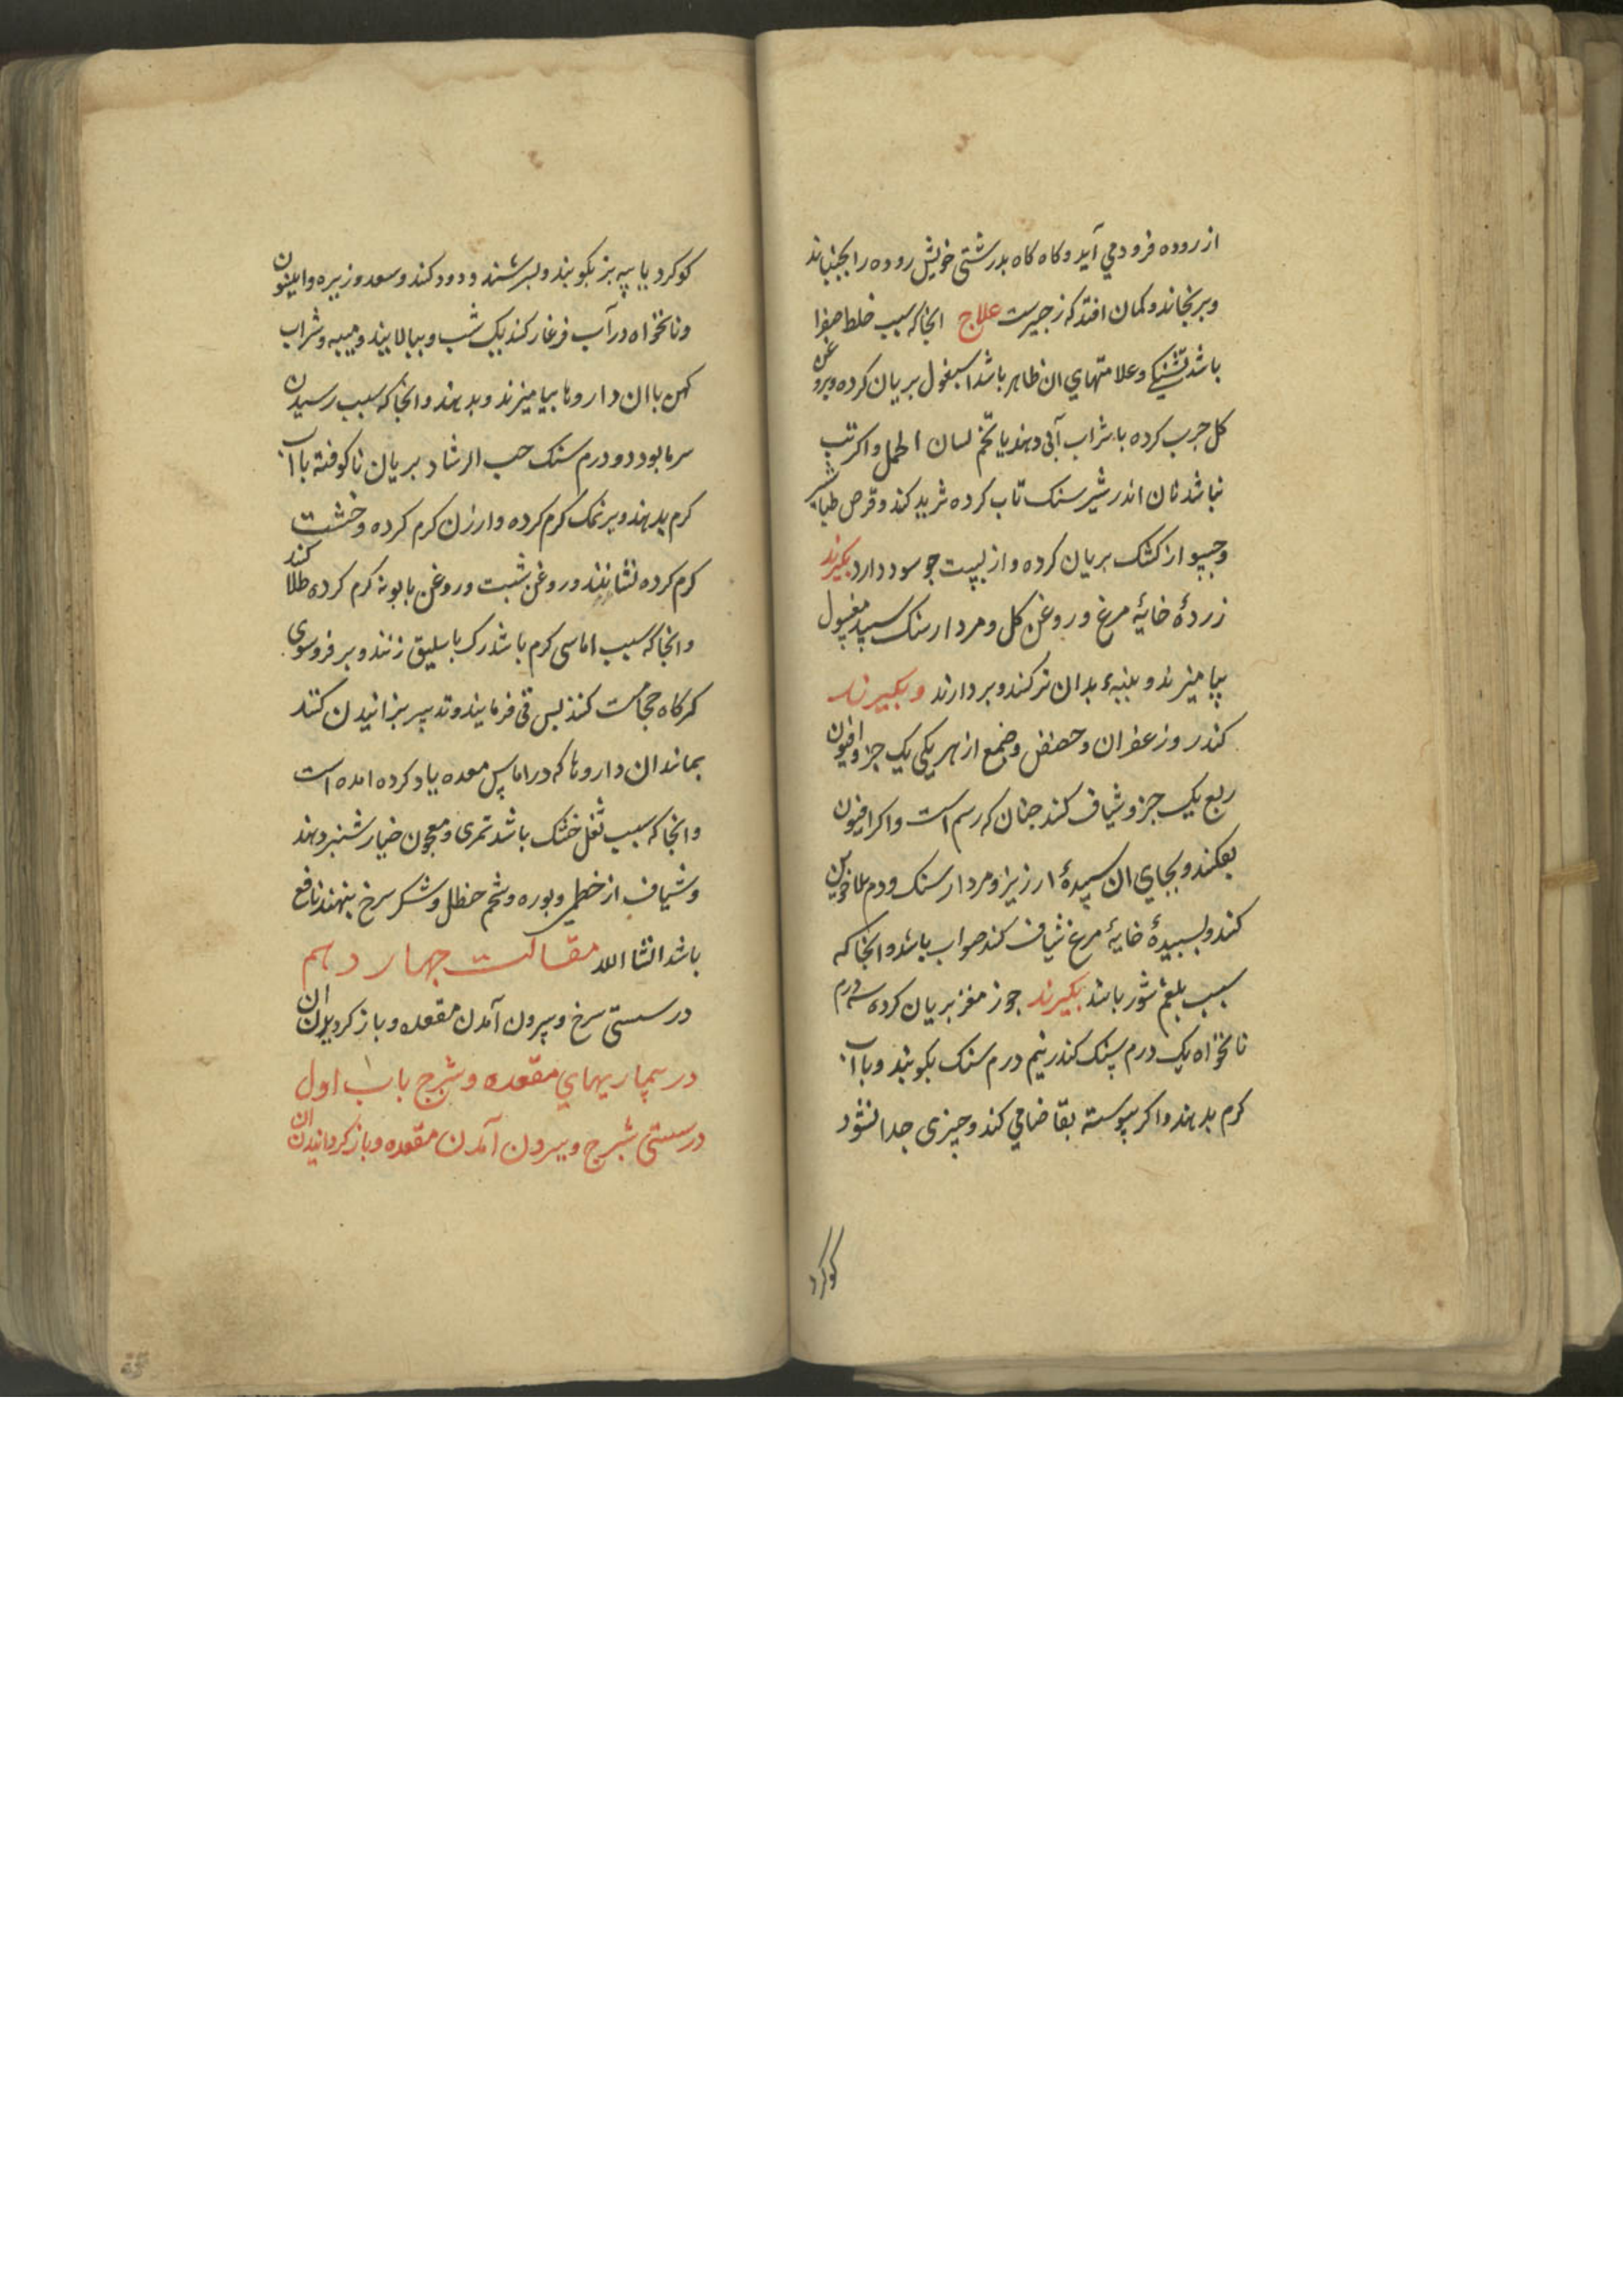 از روده فرود می آید و کاه کاه بدرشتی خویش روده را بجنباند
و برنجاند و کمان افتد که زحیرست علاج انجا که سبب خلط صفرا
باشد تشنکی و علامتهای ان ظاهر باشد اسبغول بریان کرده و بروغن
کل جرب کرده با شراب آبی دهند یا تخم لسان الحمل و اکر تب
نباشد نان اندر شیر سنک تاب کرده ثرید کند و قرص طباشیر
و از کشک بریان کرده و از پست جو سود دارد بکیرند
زردهٔ خایهٔ مرغ و روغن کل و مردارسنک سپید مغسول
بیامیزند و بنبهٔ بدان تر کنند و بردارند و بکیرند
کندر و زعفران و حضض و صمغ از هر یکی یک جزو افیون
ربع یک جزو شیاف کند جنان که رسم است و اکر افیون
بفکند و بجای ان سپیدهٔ ارزیز و مردارسنک و دم الاخوین
کند و بسبیدهٔ خایهٔ مرغ شیاف کند صواب باشد و انجا که
سبب بلغم شور باشد بکیرند جوز مغز بریان کرده سه درم
نانخواه یک درم سنک کندر نیم درم سنک بکوبند و با آب
کرم بدهند و اکر پیوسته بقاضا می کند و جیزی جدا نشود
کوکرد
کوکرد با پیه بز بکوبند و بسرشند و دود کند و سعد و زیره و انیسون
و نانخواه در آب فرغار کند یک شب و ببالایند و میبه و شراب
کهن با ان داروها بیامیزند و بدهند و انجا که سبب رسیدن
سرما بود دو درم سنک حب الرشاد بریان ناکوفته با آب
کرم بدهند و بر نمک کرم کرده و ارزن کرم کرده و خشت
کرم کرده نشانند و روغن شبت و روغن بابونه کرم کرده طلا کند
و انجا که سبب اماسی کرم باشد رک باسلیق زنند و بر فروسوی
کمرکاه حجامت کنند بس قی فرمایند و تدبیر بزانیدن کنند
بمانند ان داروها که در اماس معده یاد کرده امده است
و انجا که سبب ثفل خشک باشد تمری و معجون خیارشنبر دهند
و شیاف از خطمی و بوره و شحم حنظل و شکر سرخ بنهند نافع
باشد انشا الله مقالت جهاردهم
در سستی سرخ و بیرون آمدن مقعده و باز کردیدن ان
در بیماریهای مقعده و شرج باب اول
در سستی شرج و بیرون آمدن مقعده و باز کردانیدن ان